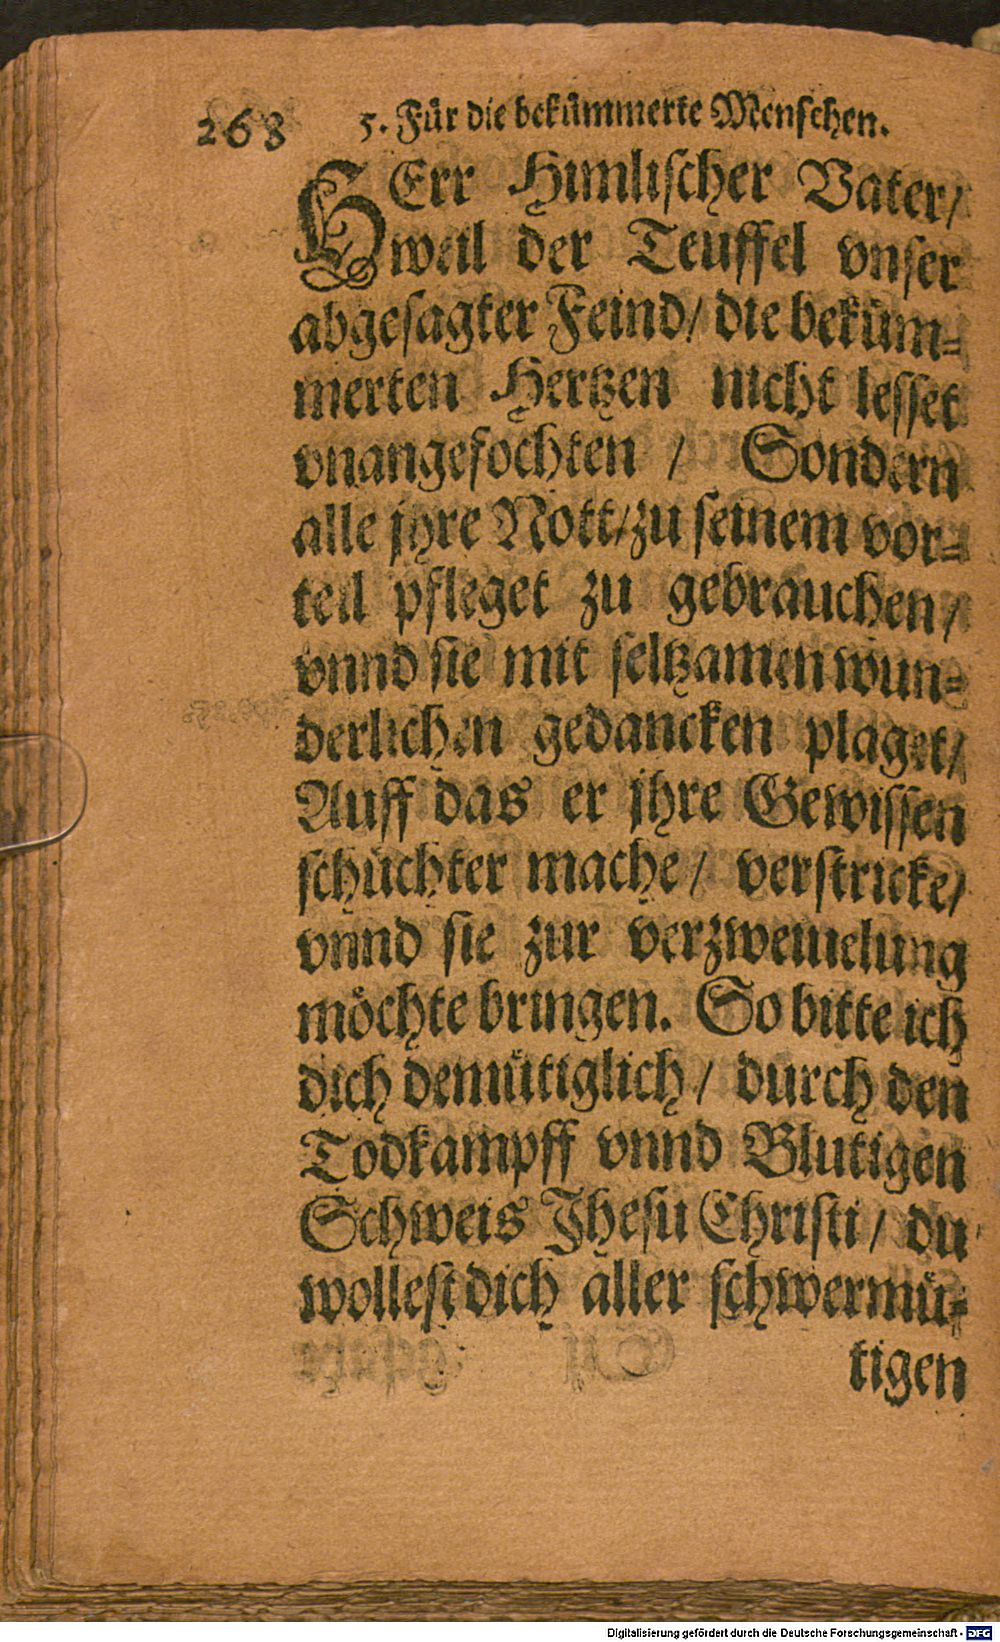 268 5. Für die bekümmerte Menschen.
HErr Himlischer Vater/
weil der Teuffel vnser
abgesagter Feind/ die beküm⸗
merten Hertzen nicht lesset
vnangefochten / Sondern
alle jhre Nott/zu seinem vor⸗
teil pfleget zu gebrauchen/
vnnd sie mit seltzamen wun⸗
derlichen gedancken plaget/
Auff das er jhre Gewissen
schüchter mache/ verstricke/
vnnd sie zur verzweiuelung
möchte bringen. So bitte ich
dich demütiglich/ durch den
Todkampff vnnd Blutigen
Schweis Jhesu Christi/ du
wollest dich aller schwermü⸗
tigen
Digitalisierung gefördert durch die Deutsche Forschungsgemeinschaft - DFG